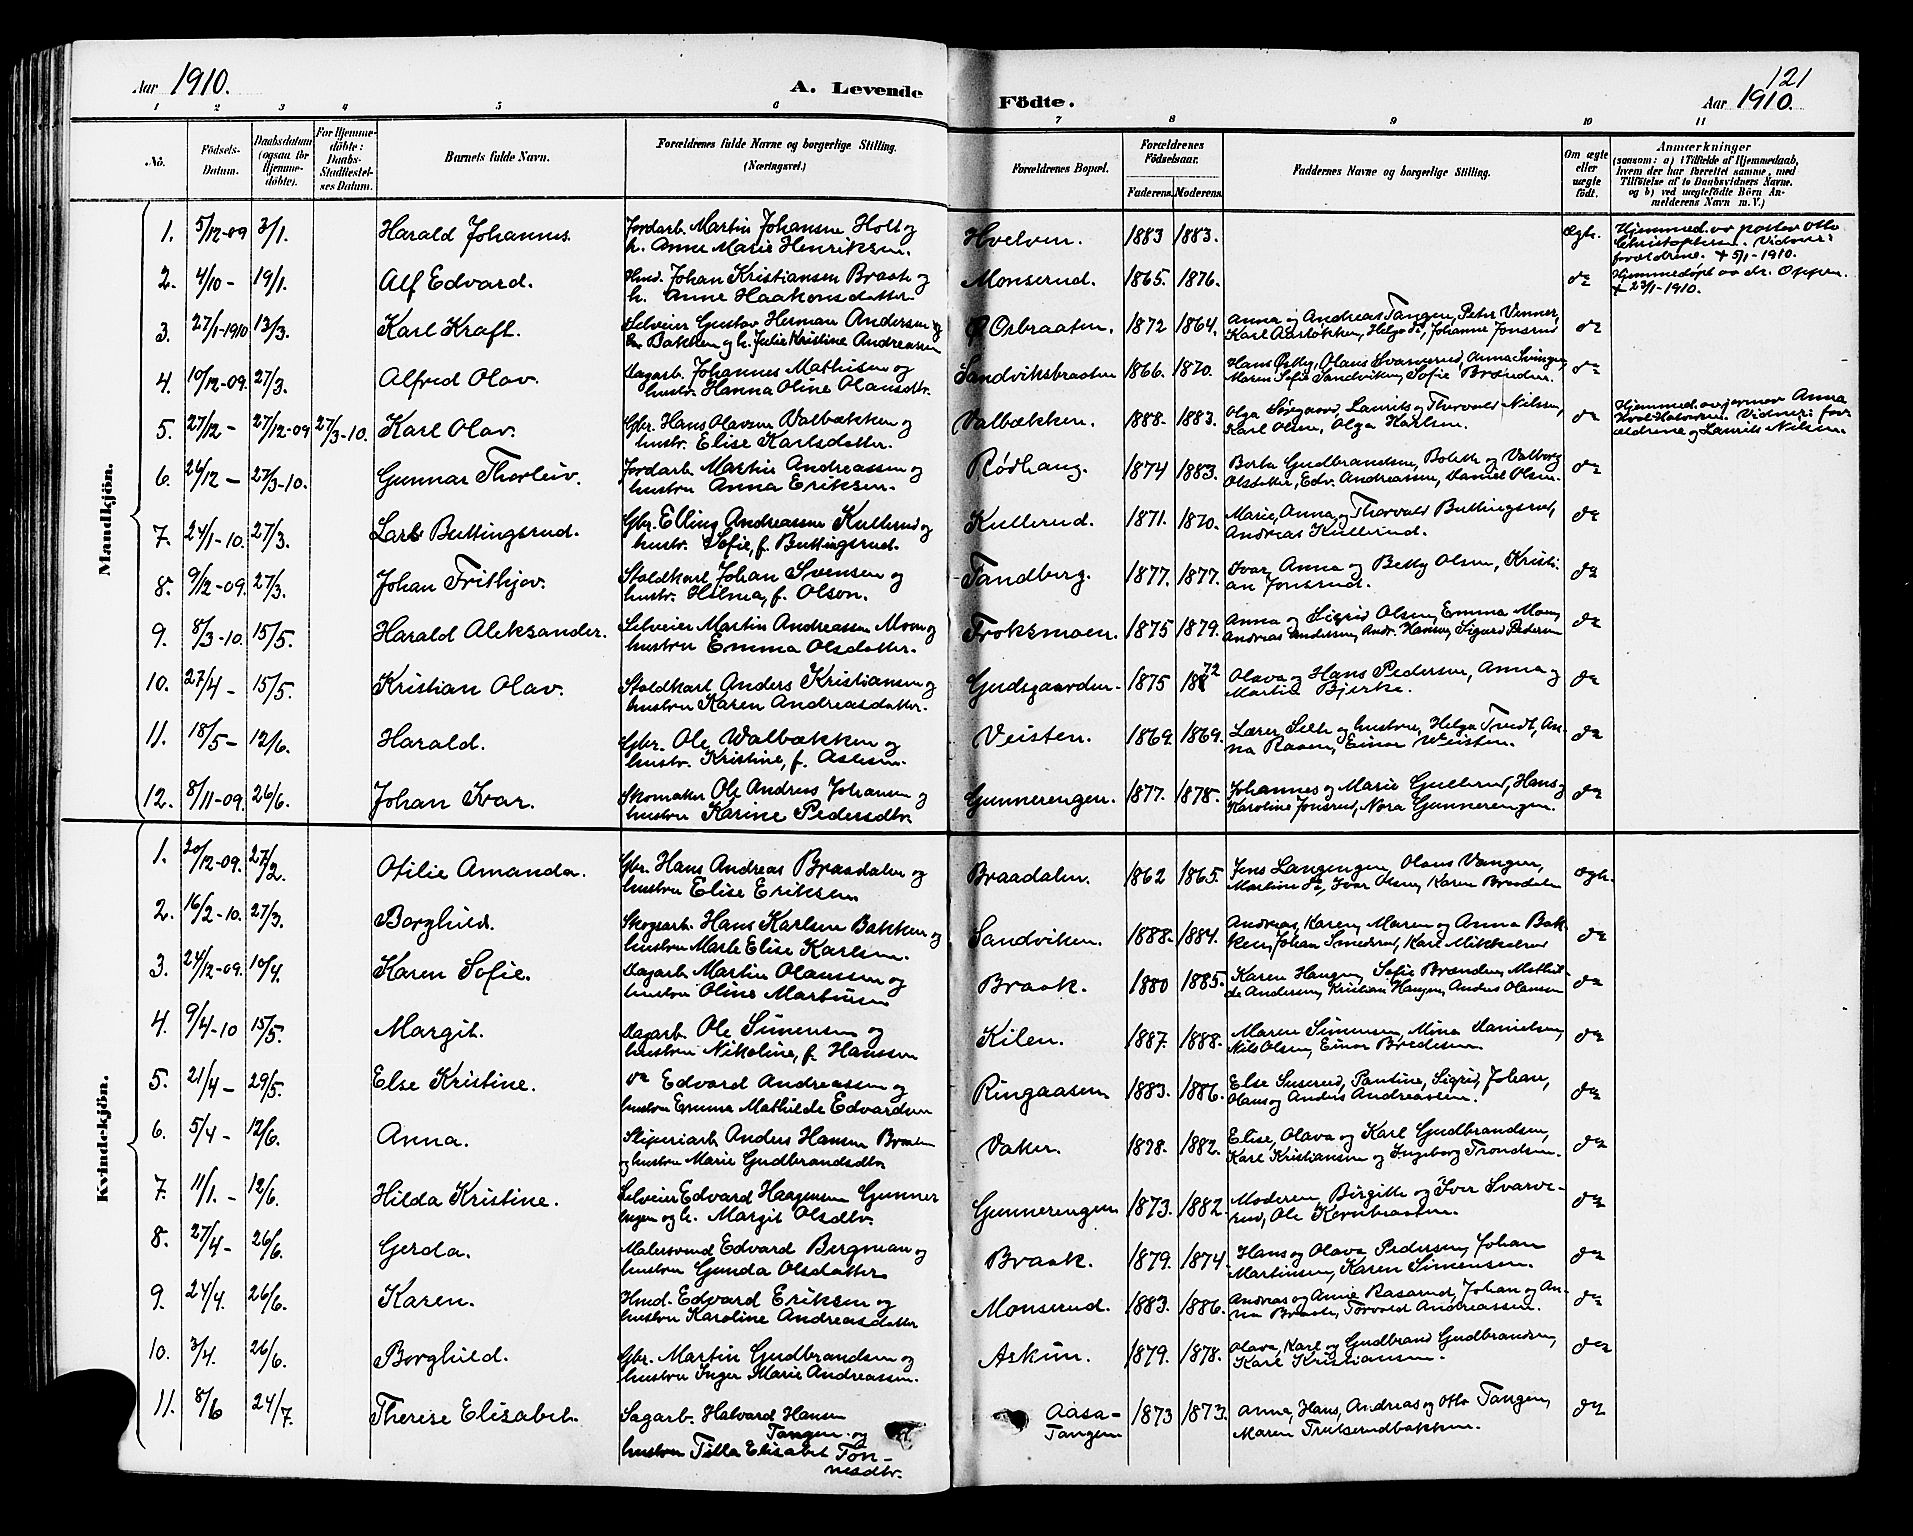 Aar 1910.
A. Levende Födte.
121
Aar 1910.
1 2 3 4 5 6 7 8 9 10 11
No.
Födsels-Datum.
Daabsdatum (ogsaa for Hjemmedöbte).
For Hjemmedöbte: Daabs-Stadfæstelses Datum.
Barnets fulde Navn.
Forældrenes fulde Navne og borgerlige Stilling. (Næringsvei.)
Forældrenes Bopæl.
Forældrenes Födselsaar.
Faderens. Moderens.
Faddernes Navne og borgerlige Stilling.
Om ægte eller uægte födt.
Anmærkninger
(saasom: a) i Tilfælde af Hjemmedaab, hvem der har forrettet samme, med Tilföielse af to Daabsvidners Navne. og b) ved uægtefödte Börn Anmelderens Navn m. V.)
Mandkjön.
1. 5/12-09 3/1. Harald Johannes. Jordarb. Martin Johansen Holt og Hvelven. 1883 1883. Ægte. Hjemmed. av pastor Otto
h. Anne Marie Henriksen. Christophersen. Vidner:
forældrene. + 5/1-1910.
2. 4/10 - 19/1. Alf Edvard. Hmd. Johan Kristiansen Braate og Monserud. 1865. 1876. do Hjemmedøpt av dr. Oppen.
h. Anne Haakonsdatter. + 23/1-1910.
3. 27/1-1910 13/3. Karl Kraft. Selveier Gustav Herman Andersen og Osbraaten. 1872 1864. Anna og Andreas Tangen, Peter Venner, do
Bakken og h. Julie Kristine Andreassen Karl Aarstøkken, Helga do, Johanne Jonsrud
4. 10/12-09. 27/3. Alfred Olav. Dagarb. Johannes Mathisen og Sandviksbraaten 1866. 1870. Hans Østby, Olaus Svarverud, Anna Svingen, do
hustr. Hanna Oline Olausdtr. Maren Sofie Sandviken, Sofie Brænden.
5. 27/12 - 27/12-09 27/3-10. Karl Olav. Gbr. Hans Olavsen Valbækken og Valbækken. 1888. 1883. Olga Søegaard, Laurits og Thorvald Nilsen, do Hjemmed. av jormor Anna
hustr. Elise Karlsdatter. Karl Olsen, Olga Karlsen. Vidner: for
ældrene og Laurits Nilsen.
6. 24/12 - 27/3-10. Gunnar Thorleiv. Jordarb. Martin Andreassen og Rødhaug. 1874 1883. Berte Gudbrandsen, Bolette og Valborg do
hustru Anna Eriksen. Olsdatter, Edv. Andreassen, Daniel Olsen.
7. 24/1-10. 27/3. Lars Buttingsrud. Gbr. Elling Andreassen Kullerud og Kullerud. 1871. 1870. Marie, Anna, og Thorvald Buttingsrud, do
hustr. Sofie, f. Buttingsrud. Andreas Kullerud.
8. 9/12-09. 27/3. Johan Frithjov. Staldkarl Johan Svensen og Tandberg. 1877. 1877. Ivar, Anna og Betty Olsen, Kristi- do
hustr. Hilma, f. Olson. an Jonsrud.
9. 8/3-10. 15/5. Harald Aleksander. Selveier Martin Andreassen Moen og Froksmoen. 1875 1879. Anna og Sigrid Olsen, Emma Moen, do
hustru Emma Olsdatter. Andreas Andersen, Andr. Hansen, Sigurd Pedersen
10. 27/4 - 15/5. Kristian Olav. Staldkarl Anders Kristiansen og Gudsgaarden. 1875 1872 Olava og Hans Pedersen, Anna og do
hustru Karen Andreasdatter. Martin Bjerke.
11. 18/5 - 12/6. Harald. Gbr. Ole Walbækken og Veisten. 1869. 1869. Lærer Selte og hustru, Helga Tredt, An- do
hustr. Kristine, f. Aslesen. na Raaen, Einar Weisten.
12. 8/11-09. 26/6. Johan Ivar. Skomaker Ole Andreas Johansen og Gunnerengen. 1877. 1878. Johannes og Marie Gullerud, Hans og do
hustru Karine Pedersdtr. Karoline Jonsrud, Nora Gunnerengen.
Kvindekjön.
1. 20/12-09. 27/2. Otilie Amanda. Gbr. Hans Andreas Braadalen og Braadalen. 1862 1865. Jens Langengen, Olaus Vangen, Ægte.
hustru Elise Eriksen Martine do, Ivar Olsen, Karen Braadalen
2. 16/2-10. 27/3. Borghild. Skogsarb. Hans Karlsen Bakken og Sandviken. 1888. 1884. Andreas, Karen, Maren og Anna Bak- do
hustru Marte Elise Karlsen. ken, Johan Smedsrud, Karl Mikkelsrud
3. 24/12-09. 10/4. Karen Sofie. Dagarb. Martin Olaussen og Braak. 1880 1885. Karen Haugen, Sofie Brænden, Mathil- do
hustru Oline Martinsen de Andersen, Kristian Haugen, Anders Olausen
4. 9/4-10 15/5. Margit. Dagarb. Ole Simensen og Kilen. 1887. 1888. Maren Simensen, Mina Danielsen, do
hustru Nikoline, f. Hanssen Nils Olsen, Einar Bredesen.
5. 21/4 - 29/5. Else Kristine. do Edvard Andreassen og Ringaasen 1883. 1886. Else Suserud, Pantine, Sigrid, Johan, do
hustru Emma Mathilde Edvardsen Hans og Anders Andreassen.
6. 5/4 - 12/6. Anna. Sliperiarb. Anders Hansen Braaten Vaker. 1878. 1882. Elise, Olava og Karl Gudbrandsen, do
og hustru Marie Gudbrandsdtr. Karl Kristiansen og Ingeborg Trondsen.
7. 11/1. - 12/6. Hilda Kristine. Selveier Edvard Haagensen Gunner Gunnerengen 1873. 1882. Moderen, Birgitte og Iver Svarve- do
engen og h. Margit Olsdtr. rud, Ole Kornbraaten.
8. 27/4 - 26/6. Gerda. Malersvend Edvard Bergman og Braak. 1879. 1874. Hans og Olava Pedersen, Johan do
hustru Gunda Olsdatter Martinsen, Karen Simensen.
9. 24/4. 26/6. Karen. Hmd. Edvard Eriksen og Monserud. 1883. 1886. Andreas og Anne Rasarud, Johan og An- do
hustru Karoline Andreasdatter na Braate, Torvald Andreassen.
10. 3/4. 26/6. Borghild. Gbr. Martin Gudbrandsen og Askim. 1879. 1878. Olava, Karl og Gudbrand Gudbrandsen, do
hustru Inger Marie Andreassen. Karl Kristiansen.
11. 8/6 24/7. Therese Elisabet. Sagarb. Halvard Hansen Aasa- 1873 1873. Anna, Hans, Andreas og Otto Tangen, do
Tangen og Tangen Maren Trulserudbakken.
hustru Tilla Elisabet Tøn-
nesdtr.